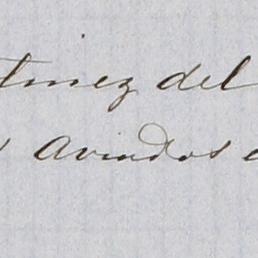 tinez del
Aviados